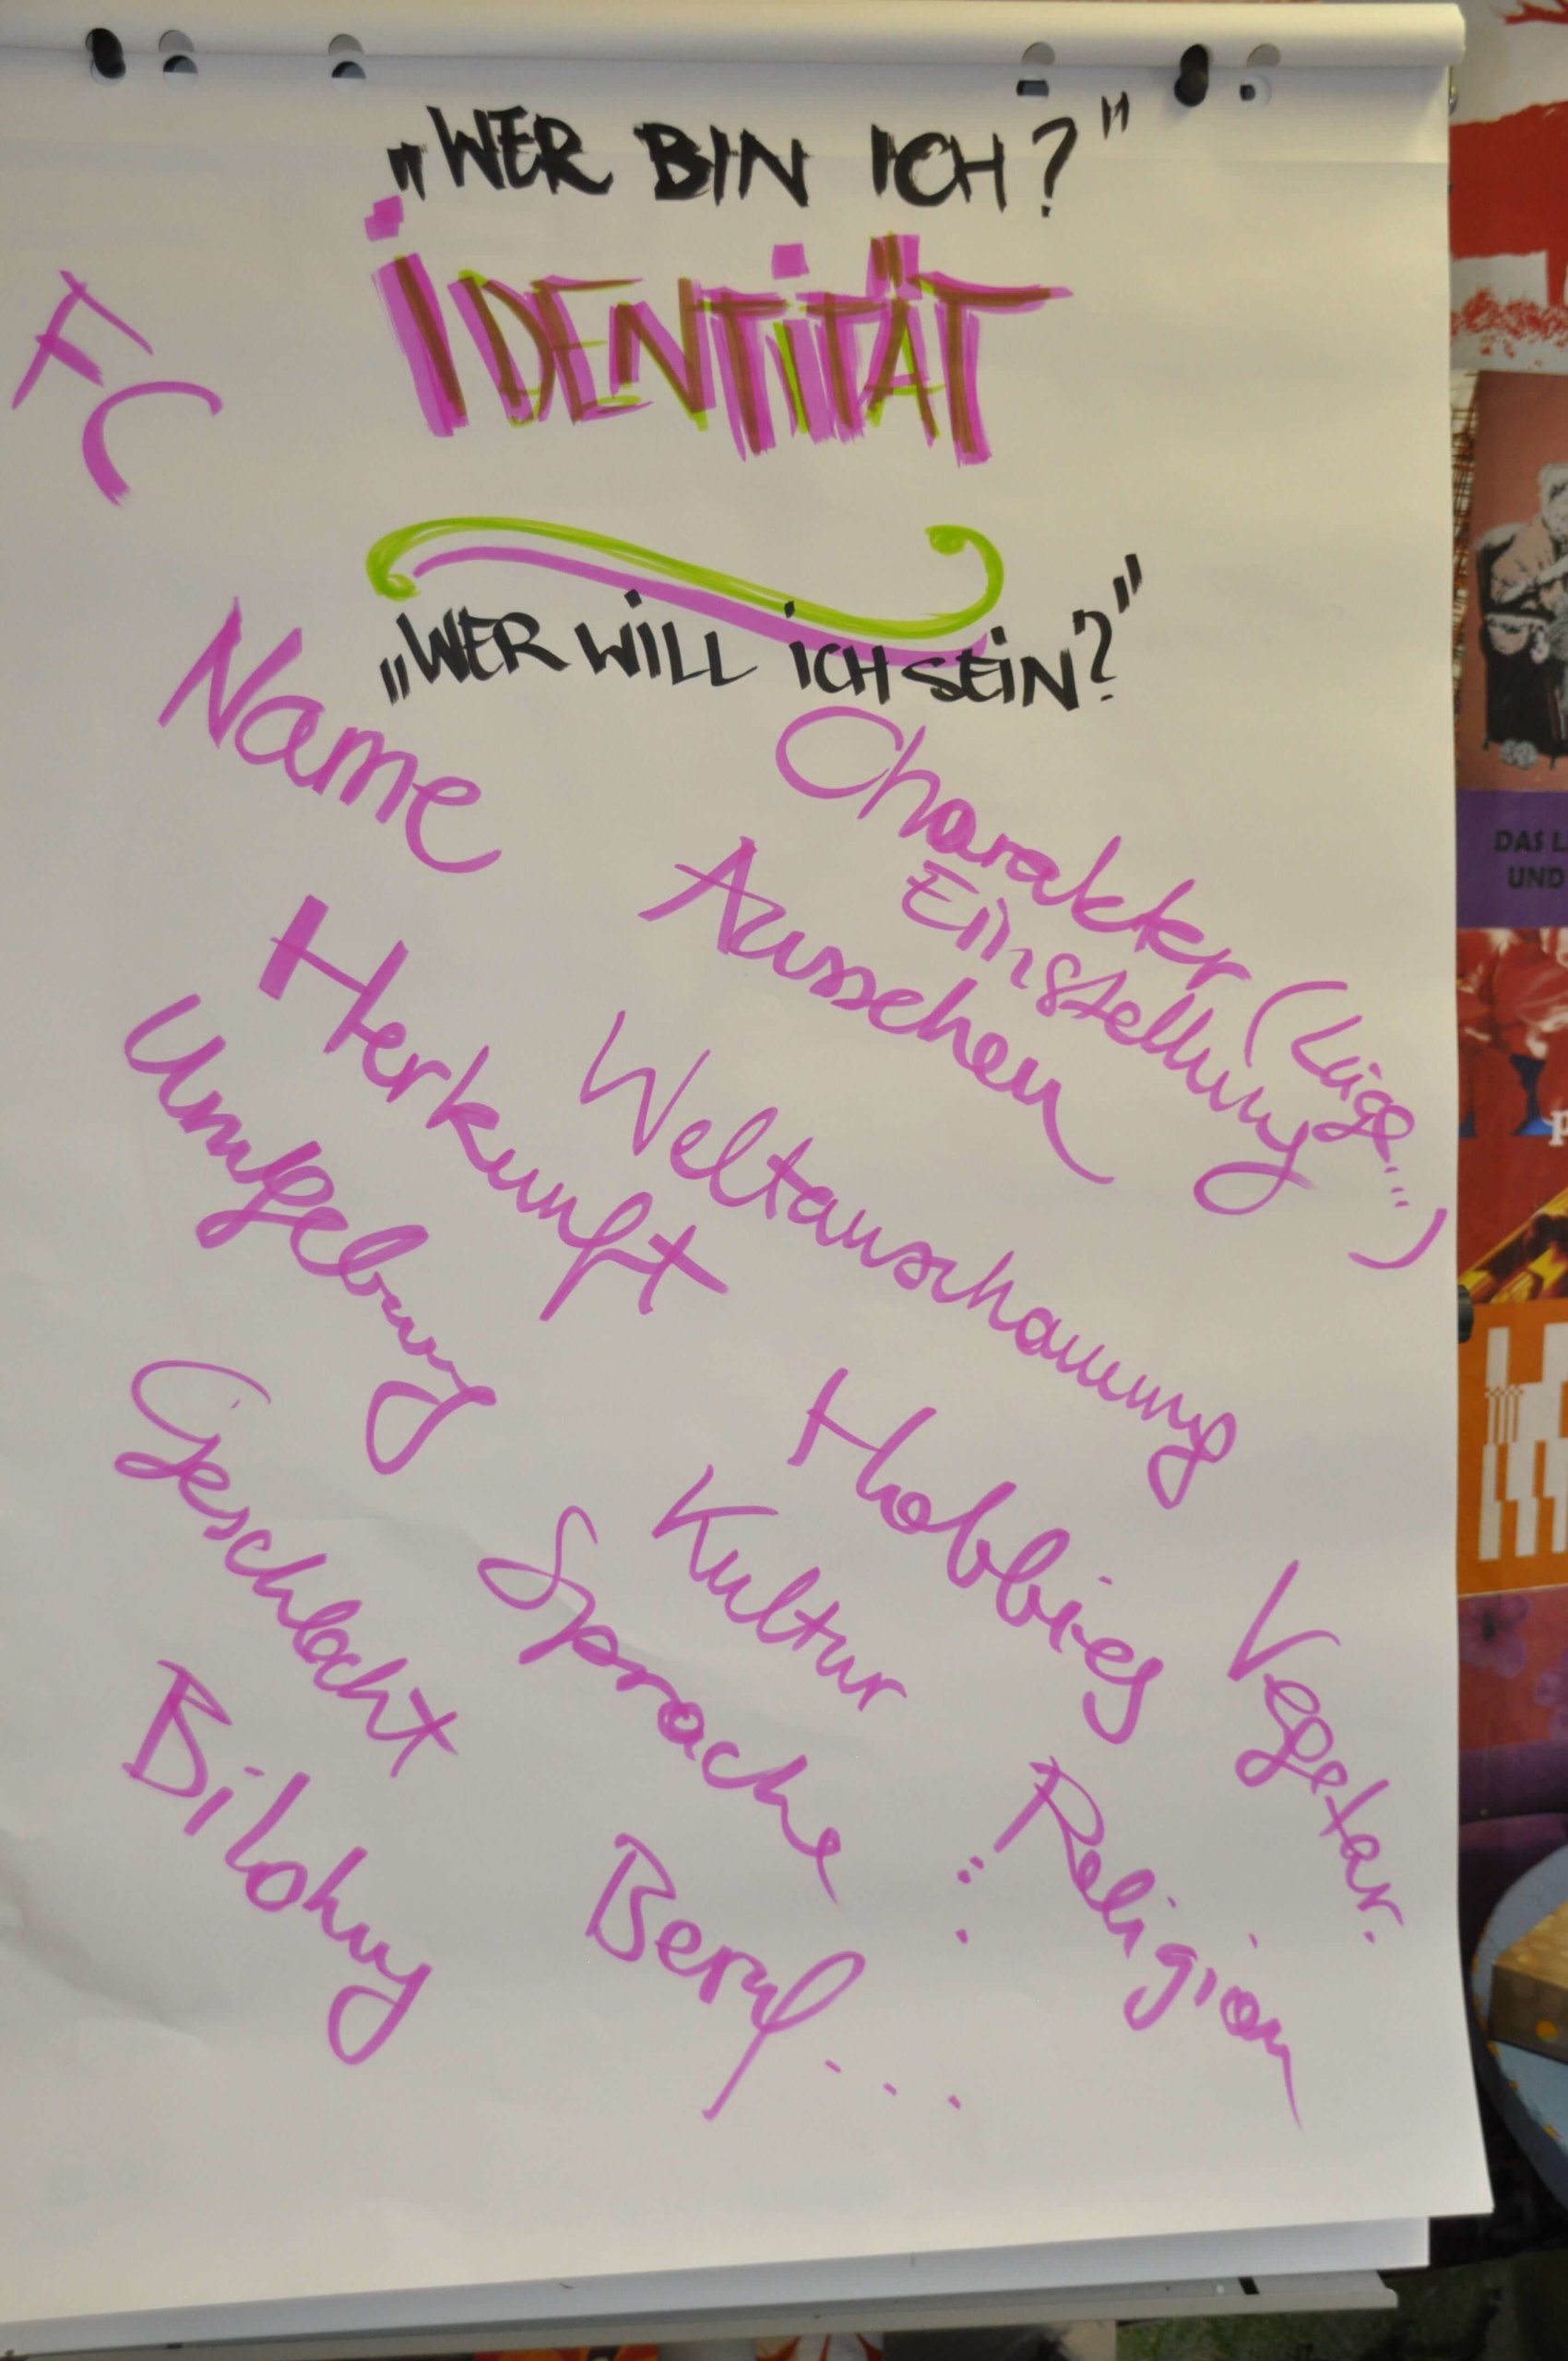 „WER BIN ICH?"
IDENTITÄT
FC
„WER WILL ICH SEIN?"
Name
Charakter (Lüge...)
Einstellung
Aussehen
Herkunft
Weltanschauung
Umgebung
Hobbies
Geschlecht
Kultur
Sprache
Vegetar.
Bildung
Religion
Beruf...
DAS L
UND